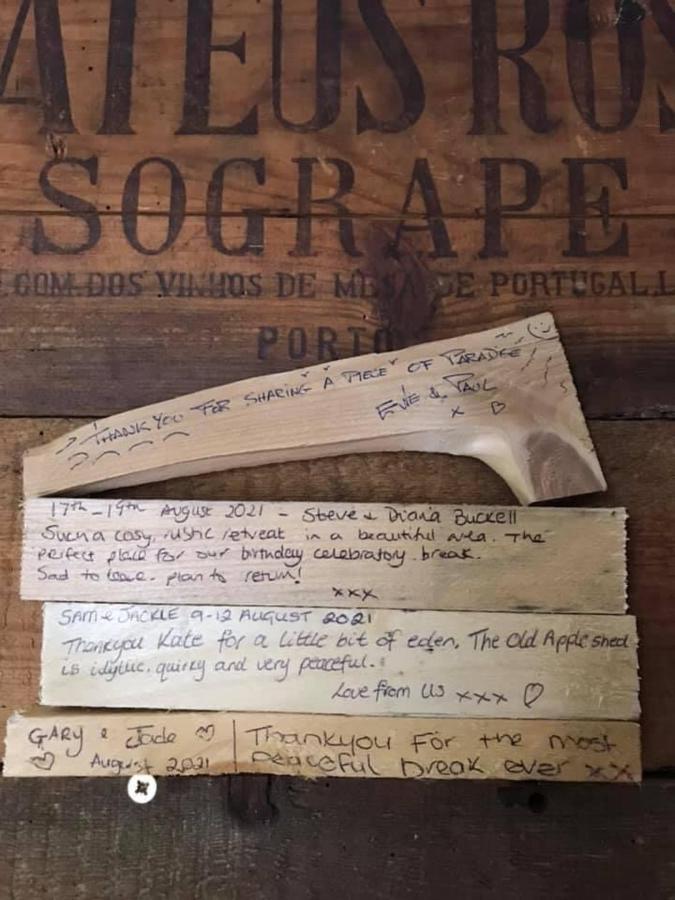 ATEUS ROS
SOGRAPE
COM.DOS VINHOS DE MESA DE PORTUGAL.L
PORTO
THANK YOU FOR SHARING 'A PIECE' OF PARADISE
EVIE & PAUL
x ♡
17th-19th August 2021 - Steve & Diana Buckell
Such a cosy, rustic retreat in a beautiful area. The
perfect place for our birthday celebratory break.
Sad to leave. plan to return!
xxx
SAM & JACKIE 9-12 AUGUST 2021
Thankyou Kate for a little bit of eden. The Old Apple shed
is idyllic, quirky and very peaceful.
Love from us xxx ♡
GARY & Jade ♡ Thankyou For the most
♡ August 2021 peaceful break ever xx